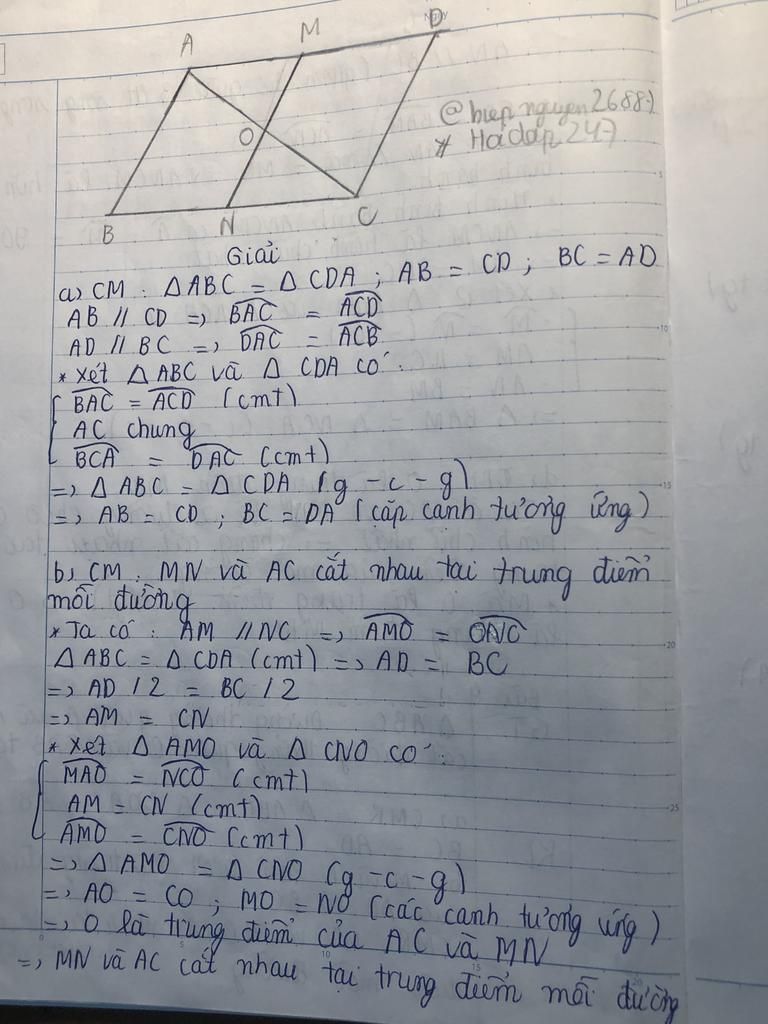 A M D
@hiepnguyen26887
* Hoidap247
O
B N C
Giải
a) CM : △ABC = △CDA ; AB = CD ; BC = AD
AB // CD => BAC = ACD
AD // BC => DAC = ACB
* Xét △ABC và △CDA có :
BAC = ACD (cmt)
AC chung
BCA = DAC (cmt)
=> △ABC = △CDA (g - c - g)
=> AB = CD ; BC = DA (cặp cạnh tương ứng)
b) CM : MN và AC cắt nhau tại trung điểm
mỗi đường
* Ta có : AM // NC => AMO = ONC
△ABC = △CDA (cmt) => AD = BC
=> AD / 2 = BC / 2
=> AM = CN
* Xét △AMO và △CNO có :
MAO = NCO (cmt)
AM = CN (cmt)
AMO = CNO (cmt)
=> △AMO = △CNO (g - c - g)
=> AO = CO ; MO = NO (các cạnh tương ứng)
=> O là trung điểm của AC và MN
=> MN và AC cắt nhau tại trung điểm mỗi đường